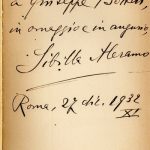 a Giuseppe
in omaggio e in augurio,
Sibilla Aleramo
Roma, 27 dic. 1932
XI